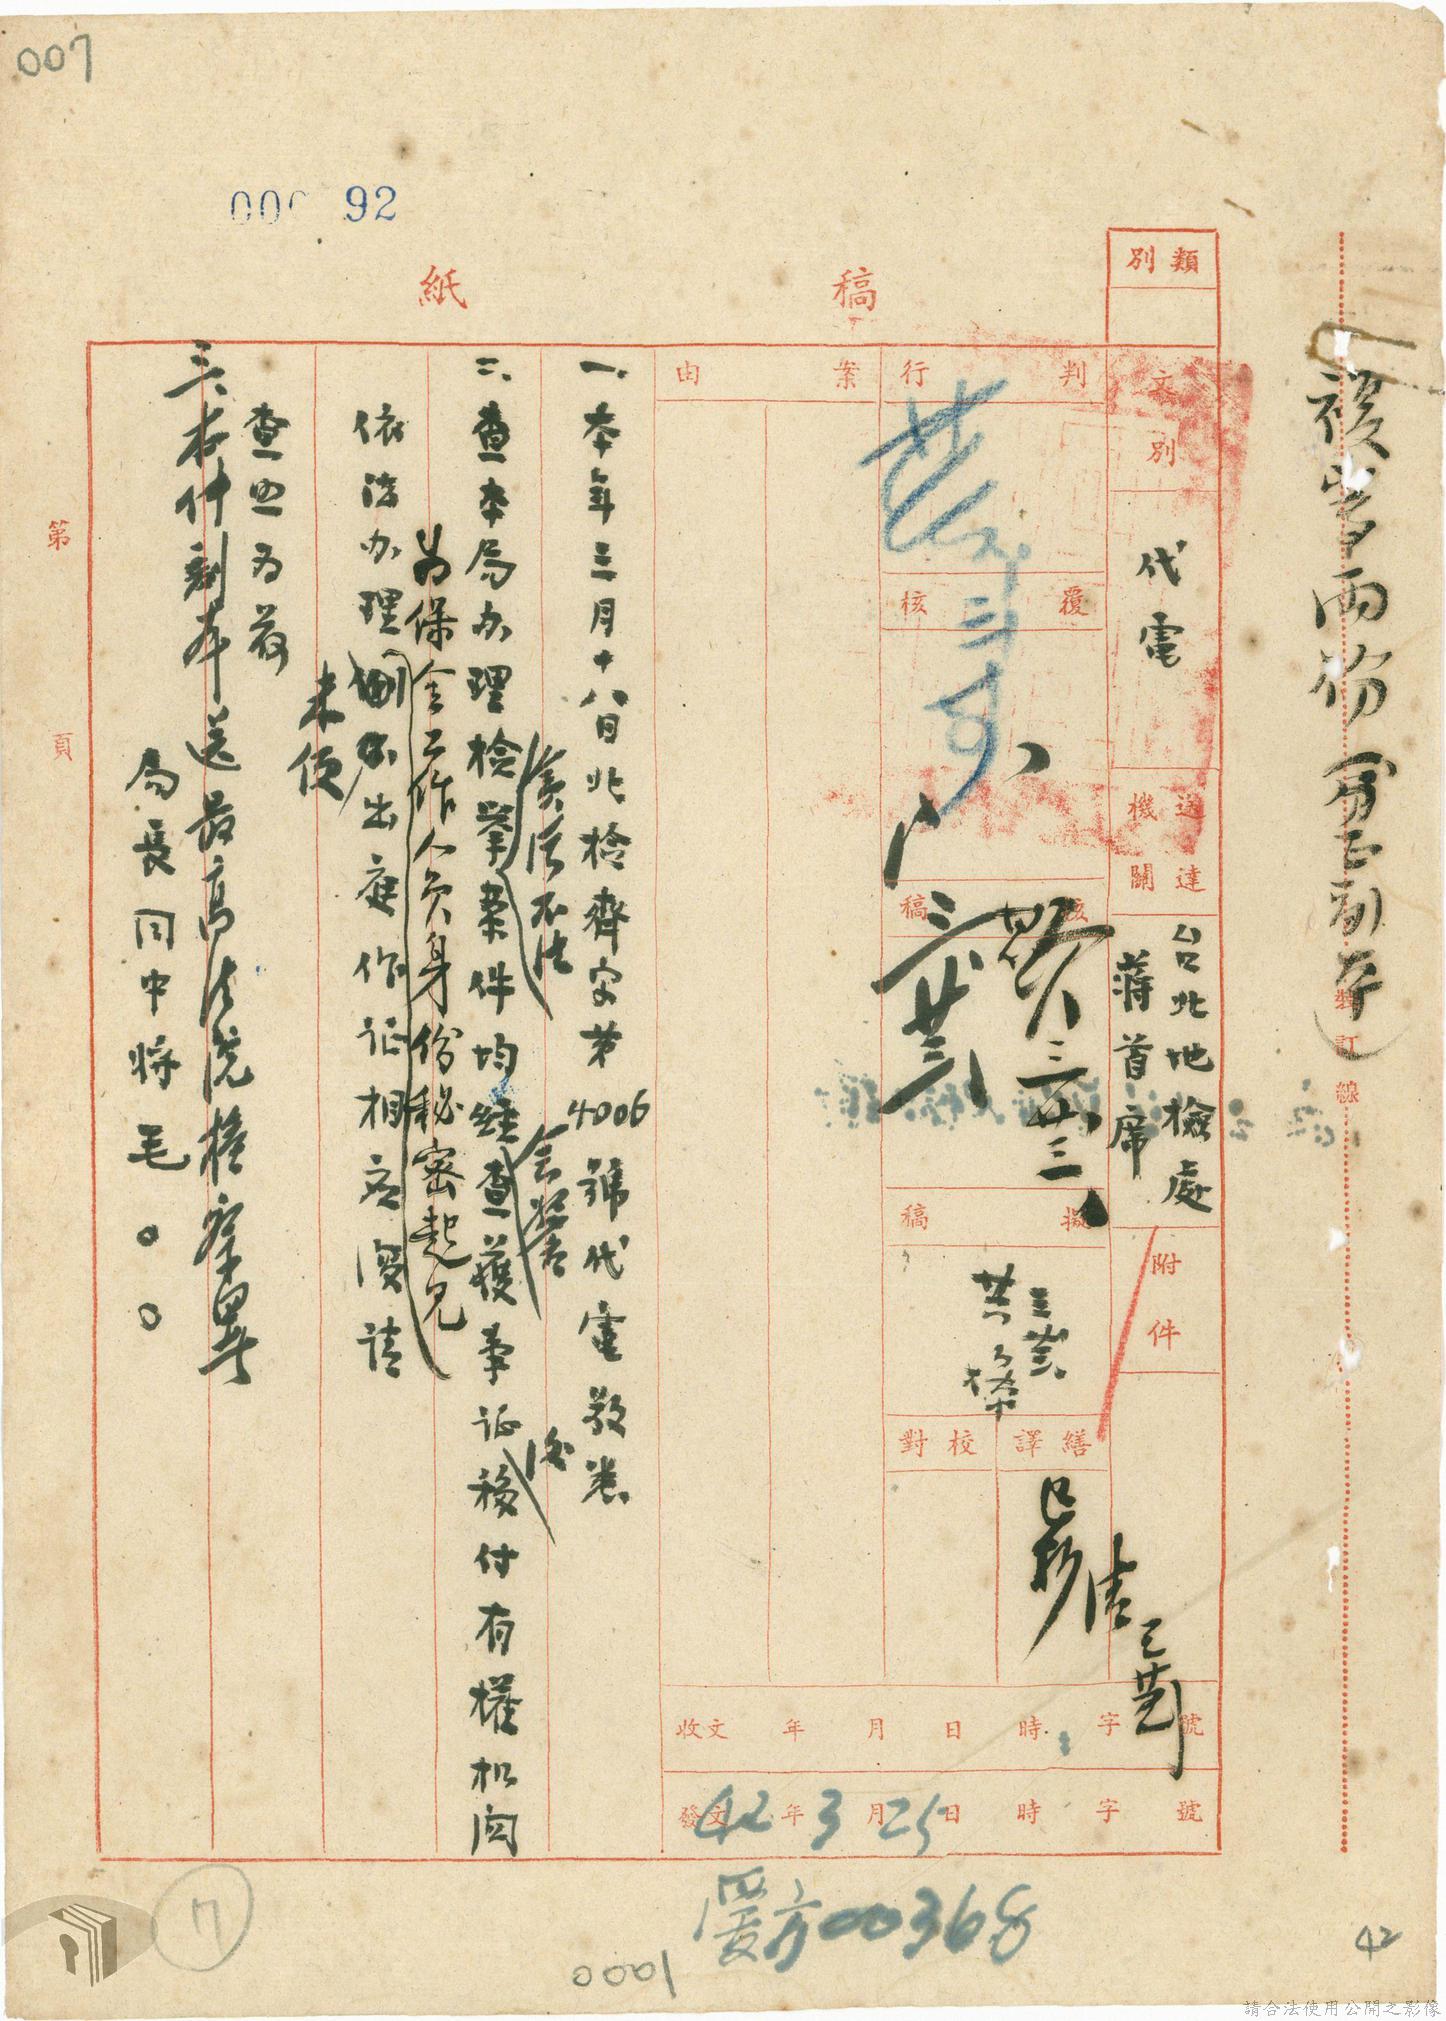 007
000 92
稿 紙
類別
文別
代電
送達機關
台北地檢處
蔣首席
附件
判行
覆核
核稿
三廿三
三廿三
擬稿
繕譯
校對
案由
收文 年 月 日 時 字 號
發文 42 年 3 月 25 日 時 字 號
00368
一、本年三月十八日北檢齊字第4006號代電敬悉
二、查本局办理檢舉案件均經查獲事証移付有權机関
奚居不法
会警
後
為保全工作人員身份秘密起見
依法办理 出庭作証相应復請
未便
查照為荷
三、本件副本送最高法院檢察署
局長同中將毛○○
第 頁
裝訂線
兩份
副本
7
1000
42
請合法使用公開之影像